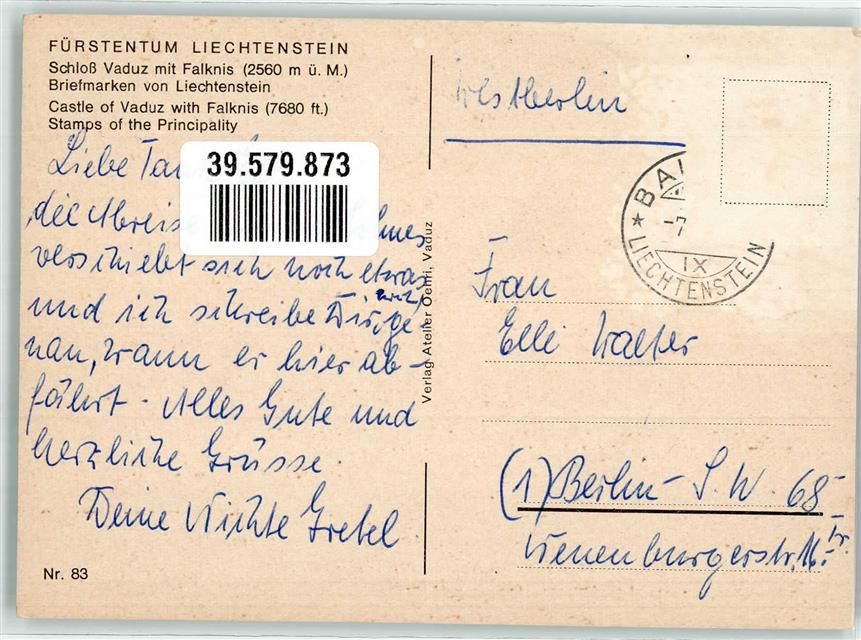 FÜRSTENTUM LIECHTENSTEIN
Schloß Vaduz mit Falknis (2560 m ü. M.)
Briefmarken von Liechtenstein
Castle of Vaduz with Falknis (7680 ft.)
Stamps of the Principality
39.579.873
Liebe Tan
die Abreise
verschiebt sich noch etwas
und ich schreibe Dir ge-
nau, wann er hier ab-
fährt. Alles Gute und
herzliche Grüsse.
Deine Nichte Gretel
Nr. 83
Verlag Atelier Oehri, Vaduz
Westberlin
BAL
-7
IX
LIECHTENSTEIN
Frau
Elli Walter
(1) Berlin - S.W. 68